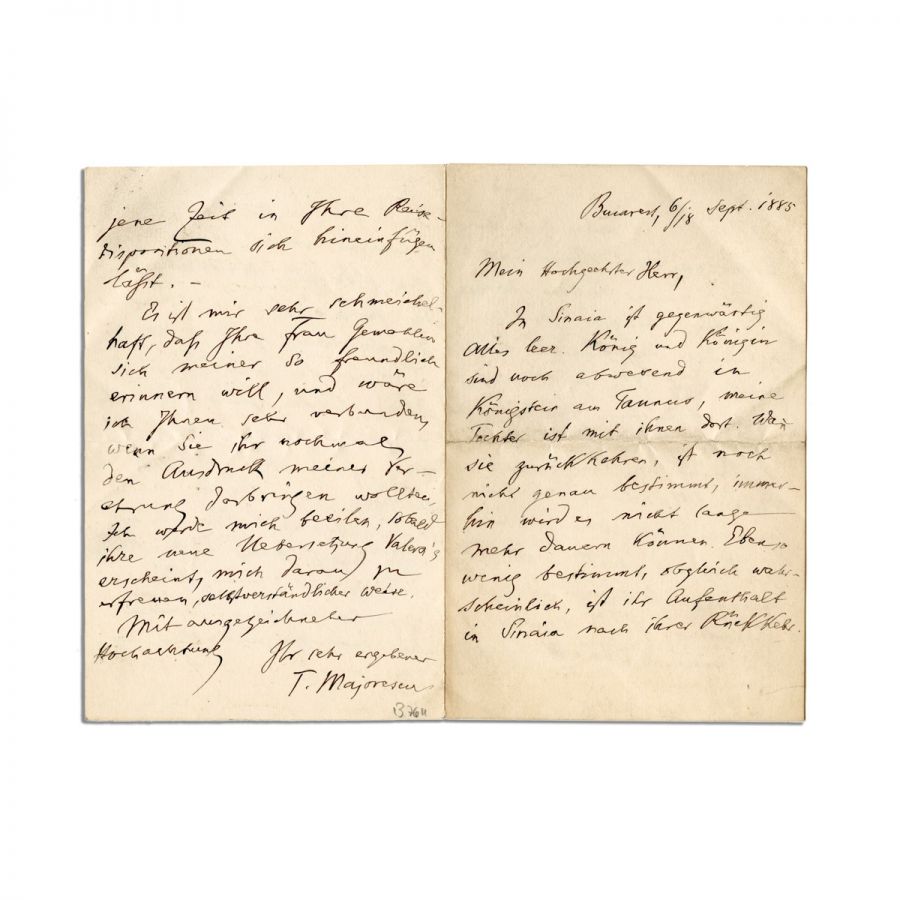 Bucarest, 6/18 Sept. 1885
Mein Hochgeehrter Herr,
In Sinaia ist gegenwärtig
Alles leer. König und Königin
sind noch abwesend in
Königstein am Taunus, meine
Tochter ist mit ihnen dort. Wan
sie zurückkehren, ist noch
nicht genau bestimmt, immer-
hin wird es nicht lange
mehr dauern können. Eben so
wenig bestimmt, obgleich wahr-
scheinlich, ist ihr Aufenthalt
in Sinaia nach ihrer Rückkehr.
jene Zeit in Ihre Reise-
dispositionen sich hineinfügen
läßt. –
Es ist mir sehr schmeichel-
haft, daß Ihre Frau Gemahlin
sich meiner so freundlich
erinnern will, und wäre
ich Ihnen sehr verbunden,
wenn Sie ihr nochmals
den Ausdruck meiner Ver-
ehrung darbringen wollten.
Ich werde mich beeilen, sobald
ihre neue Uebersetzung Valera's
erscheint, mich daran zu
erfreuen, selbstverständlicher weise.
Mit ausgezeichneter
Hochachtung
Ihr sehr ergebener
T. Majorescu
B 7611